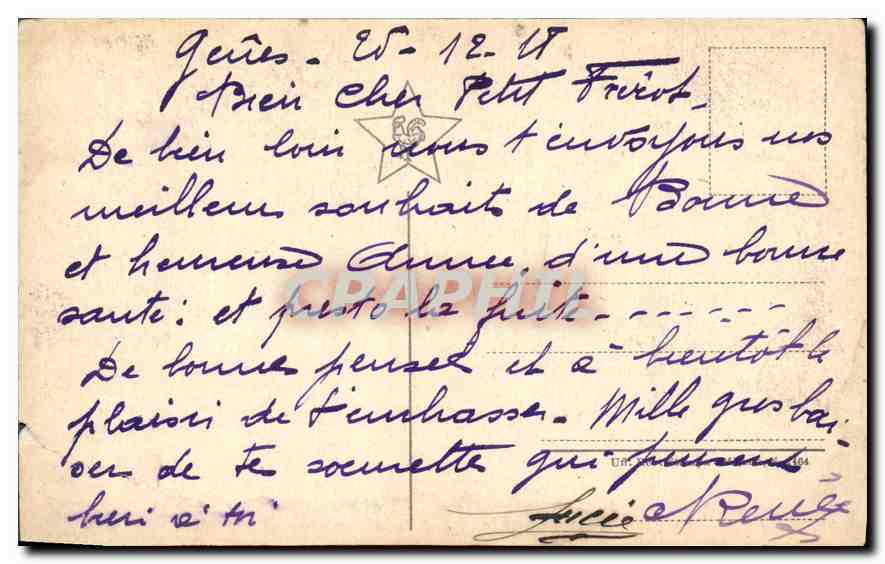 Gênes - 25-12-18
Bien Cher Petit Frérot,
De bien loin nous t'envoyons nos
meilleurs souhaits de Bonne
et heureuse Année, d'une bonne
santé; et presto la fuite - - - - - - -
De bonnes pensées et à bientôt le
plaisir de t'embrasser. Mille gros bai-
sers de tes soeurettes qui pensent
bien à toi
Lucie Renée
CPAPHIL
464